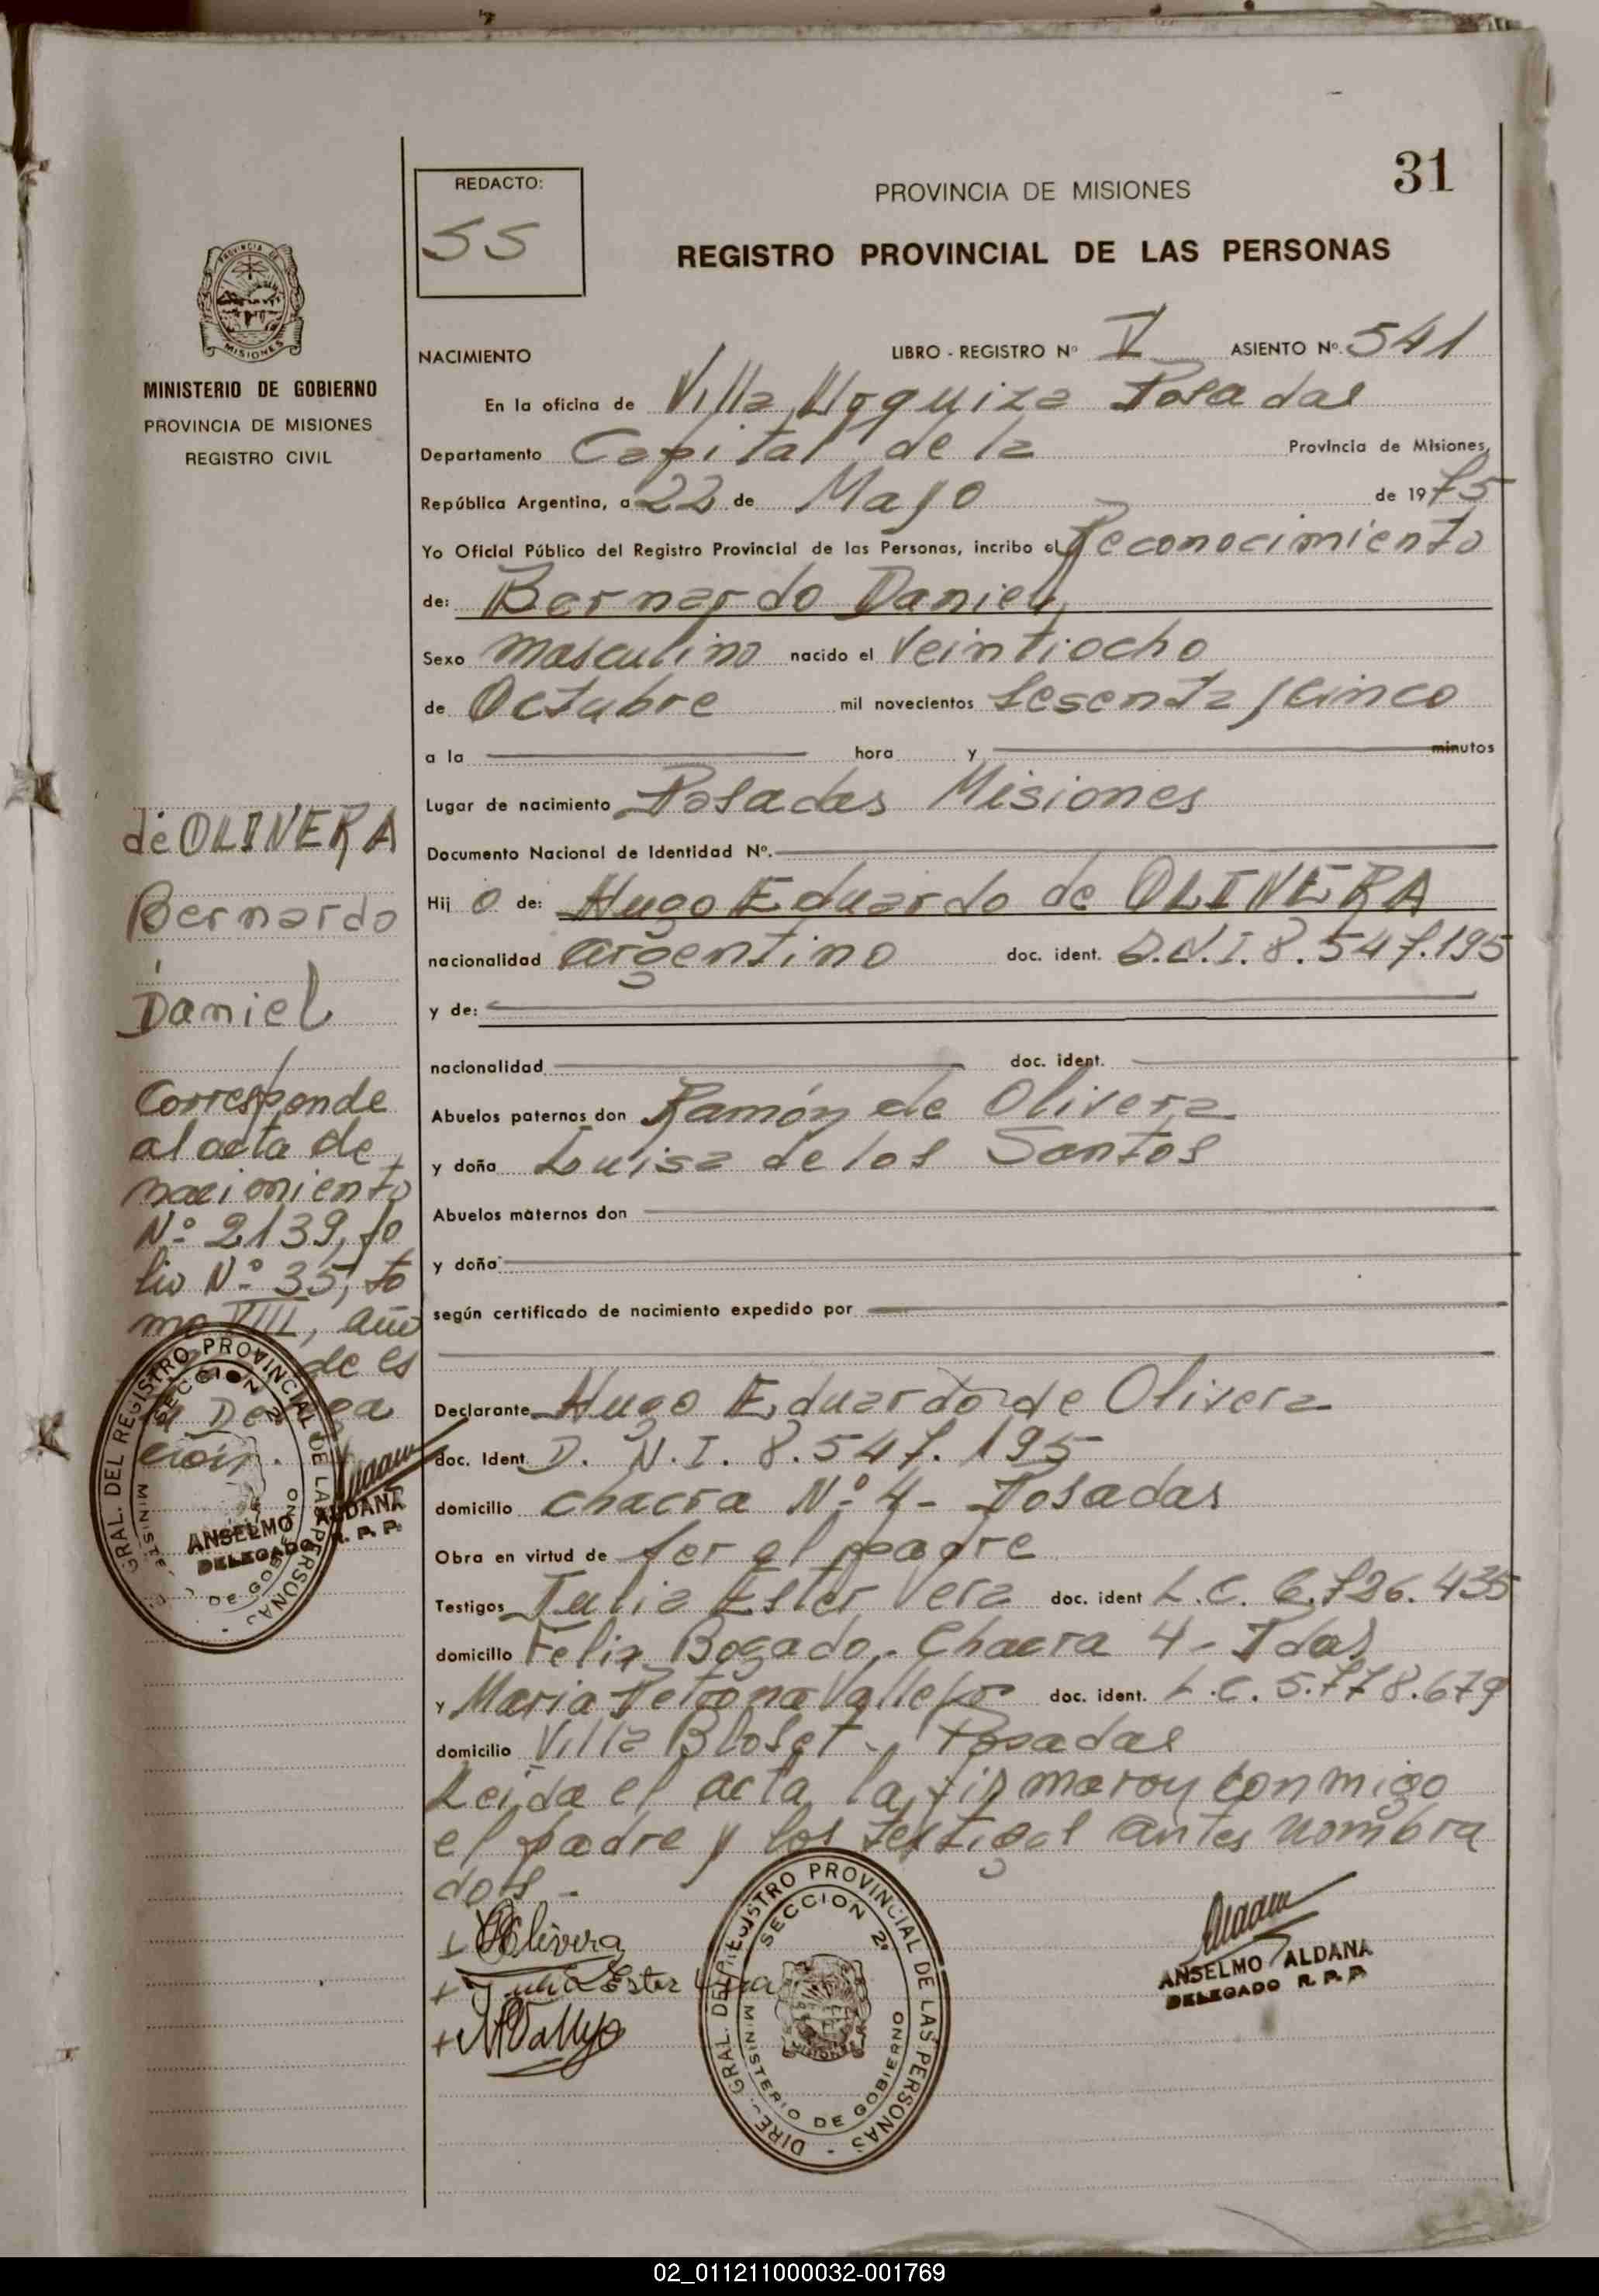 31
REDACTO:
SS
PROVINCIA DE MISIONES
REGISTRO PROVINCIAL DE LAS PERSONAS
NACIMIENTO LIBRO - REGISTRO Nº V ASIENTO Nº. 541
En la oficina de Villa Urquiza Posadas
Departamento Capital de la Provincia de Misiones,
República Argentina, a 22 de Mayo de 1975
Yo Oficial Público del Registro Provincial de las Personas, incribo el Reconocimiento
de: Bernardo Daniel
Sexo masculino nacido el Veintiocho
de Octubre mil novecientos sesenta y cinco
a la hora y minutos
Lugar de nacimiento Posadas Misiones
Documento Nacional de Identidad Nº.
Hij o de: Hugo Eduardo de OLIVERA
nacionalidad argentino doc. ident. D.N.I. 8.547.195
y de:
nacionalidad doc. ident.
Abuelos paternos don Ramón de Olivera
y doña Luisa de los Santos
Abuelos maternos don
y doña
según certificado de nacimiento expedido por
Declarante Hugo Eduardo de Olivera
doc. Ident. D.N.I. 8.547.195
domicilio chacra Nº 4- Posadas
Obra en virtud de ser el padre
Testigos Julia Ester Vera doc. ident L.C. 6.726.435
domicilio Felix Bogado, Chacra 4 - Pdas
y Maria Petrona Vallejos doc. ident. L.C. 5.778.679
domicilio Villa Bloset - Posadas
Leida el acta la firmaron conmigo
el padre y los testigos antes nombra
dos -
Olivera
Julia Ester Vera
MVallejo
DIREC. GRAL. DEL REGISTRO PROVINCIAL DE LAS PERSONAS
SECCION 2ª
MISIONES
MINISTERIO DE GOBIERNO
ANSELMO ALDANA
DELEGADO R. P. P.
PROVINCIA DE
MISIONES
MINISTERIO DE GOBIERNO
PROVINCIA DE MISIONES
REGISTRO CIVIL
de OLIVERA
Bernardo
Daniel
Corresponde
al acta de
nacimiento
Nº 2139, fo
lio Nº 35, to
mo VIII, año
de es
ción.
GRAL. DEL REGISTRO PROVINCIAL DE LAS PERSONAS
SECCION 2ª
DE GOBIERNO
ANSELMO ALDANA
DELEGADO R. P. P.
02_011211000032-001769